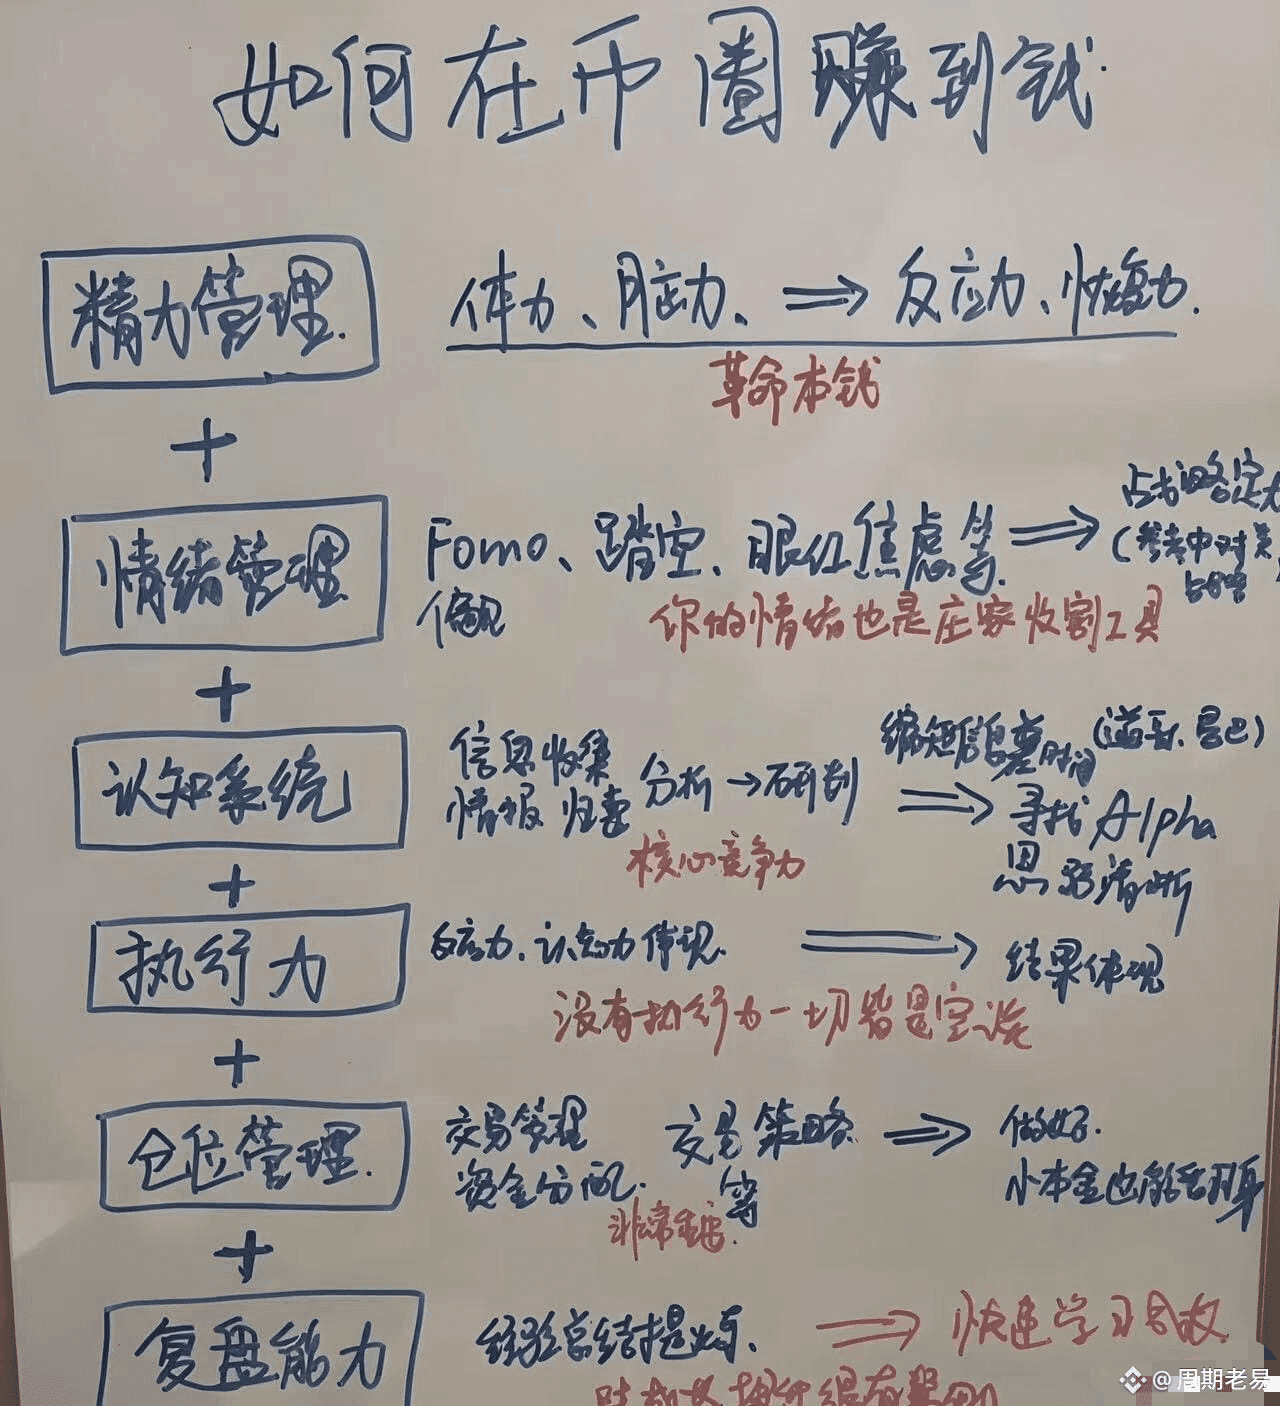 如何在币圈赚到钱.
精力管理.
体力、脑力、⇒ 反应力、恢复力.
革命本钱
+
情绪管理
Fomo、踏空、眼红焦虑等. ⇒
偏见
占书略定
(参考中对美
你的情绪也是庄家收割工具
+
认知系统
信息收集
情报归妻 分析→研判 ⇒
缩短信息差时间 (道哥、
寻找Alpha
思路清晰
核心竞争力
+
执行力
反应力、认知力体现. ⇒ 结果体现
没有执行力一切皆是空谈
+
仓位管理.
交易管理 交易策略 ⇒ 做好.
资金分配. 等 小本金也能活翻身
非常重要.
+
复盘能力
经验总结提炼. ⇒ 快速学习
@周期老易